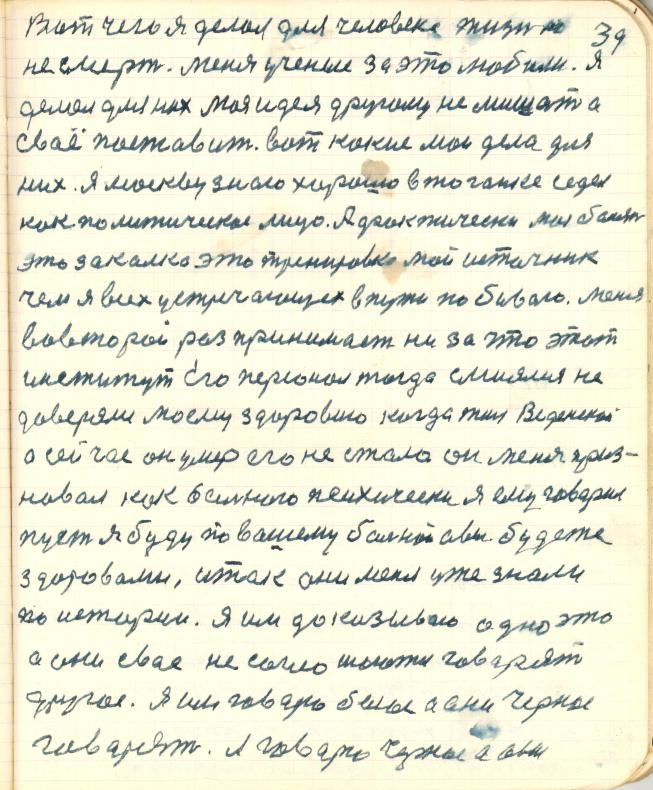 Вот чего я делал для человека жизн а 39
не смерт. меня ученые за это любили. Я
делал для них моя идея другому не мишат а
сваё поставит. вот какие мои дела для
них. Я москву знаю хорошо в таганке седел
как политическое лицо. А фрактически моя
это закалка это тренировка мой источник
чем я всех устречающех в пути побиваю. меня
вовторой раз принимает ни за что этот
институт Его персонал тогда смиялися не
доверяли моему здоровию когда жил Веденской
а сейчас он умер его не стало он меня приз-
навал как болного психически я ему говарил
пуст я буду по вашему болной а вы будете
здоровами, итак они меня уже знали
по истории. Я им доказываю одно это
а они свае не соглошаютя говарят
другое. Я им говарю белое а они Черное
говарят. А говарю Черное а они